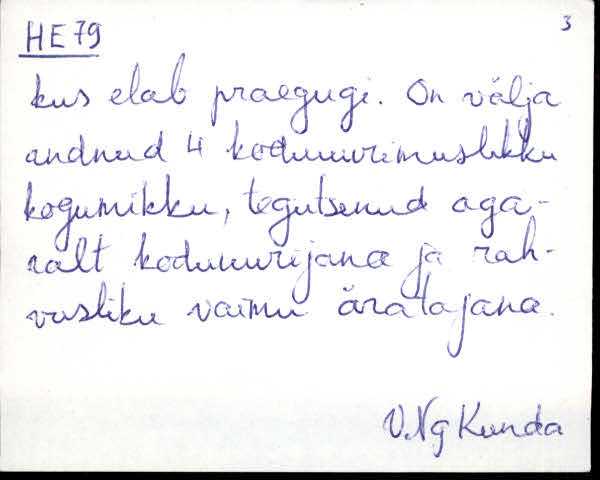 HE 79
3
kus elab praegugi. On välja
andnud 4 koduuurimuslikku
kogumikku, tegutsenud aga-
ralt koduuurijana ja rah-
vusliku vaimu äratajana.
V. Ng Kunda